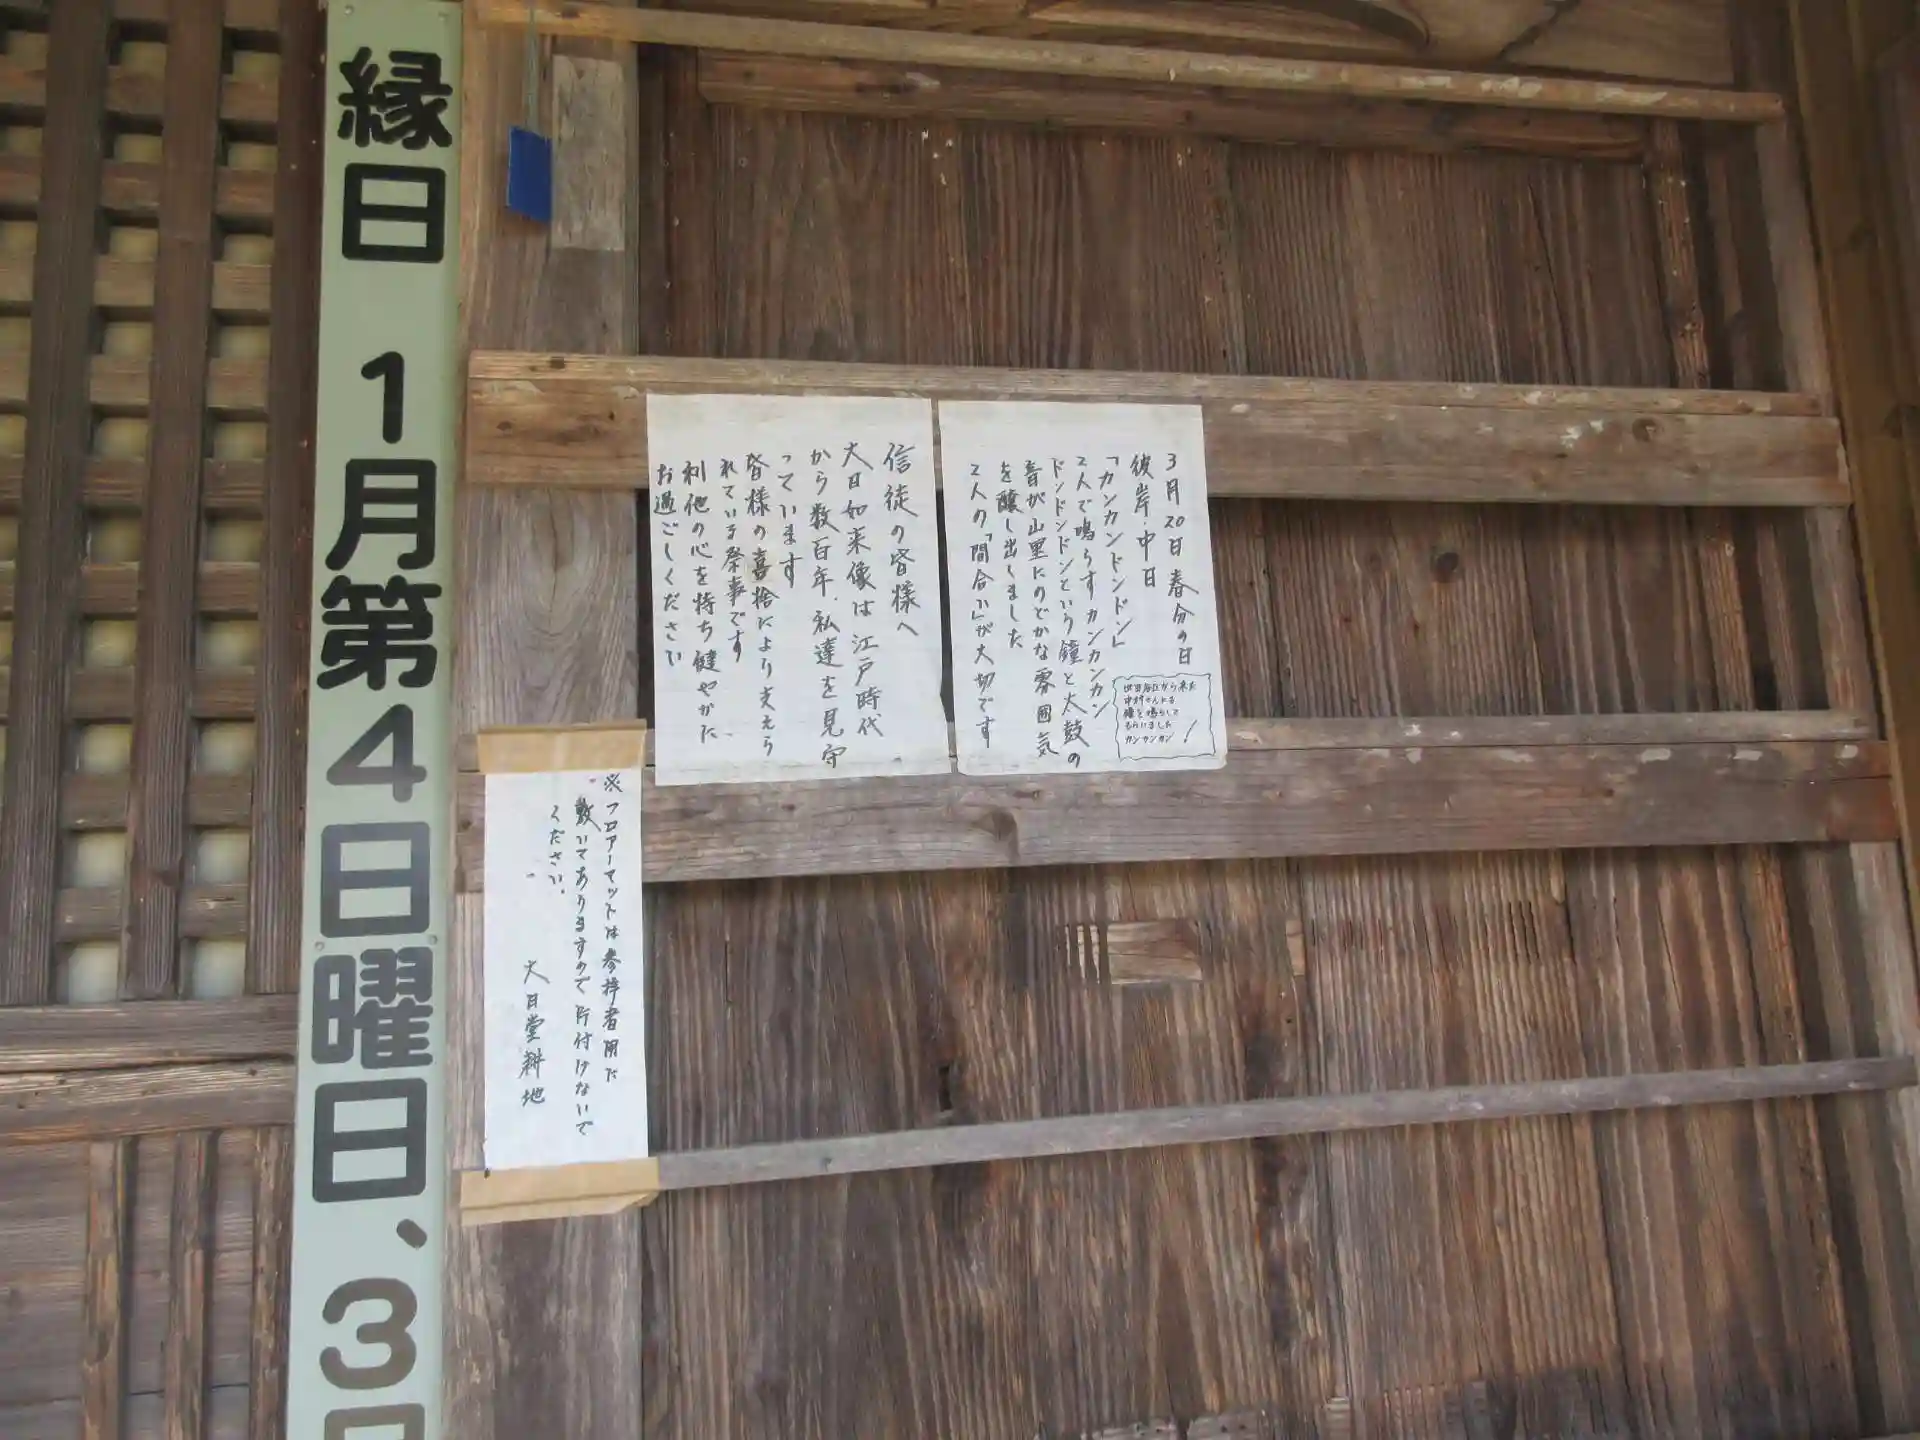 縁日 1月第4日曜日、3
3月20日 春分の日
彼岸・中日
「カンカンドンドン」
2人で鳴らすカンカンカン
ドンドンドンという鐘と太鼓の
音が山里にのどかな雰囲気
を醸し出しました
2人の「間合い」が大切です
世田谷区から来た
中村さんによる
鐘を鳴らして
もらいました
カンカンカン!
信徒の皆様へ
大日如来像は江戸時代
から数百年、私達を見守
っています
皆様の喜捨により支えら
れている祭事です
利他の心を持ち健やかに
お過ごしください
※フロアーマットは参拝者用に
敷いてありますので片付けないで
ください。
大日堂耕地